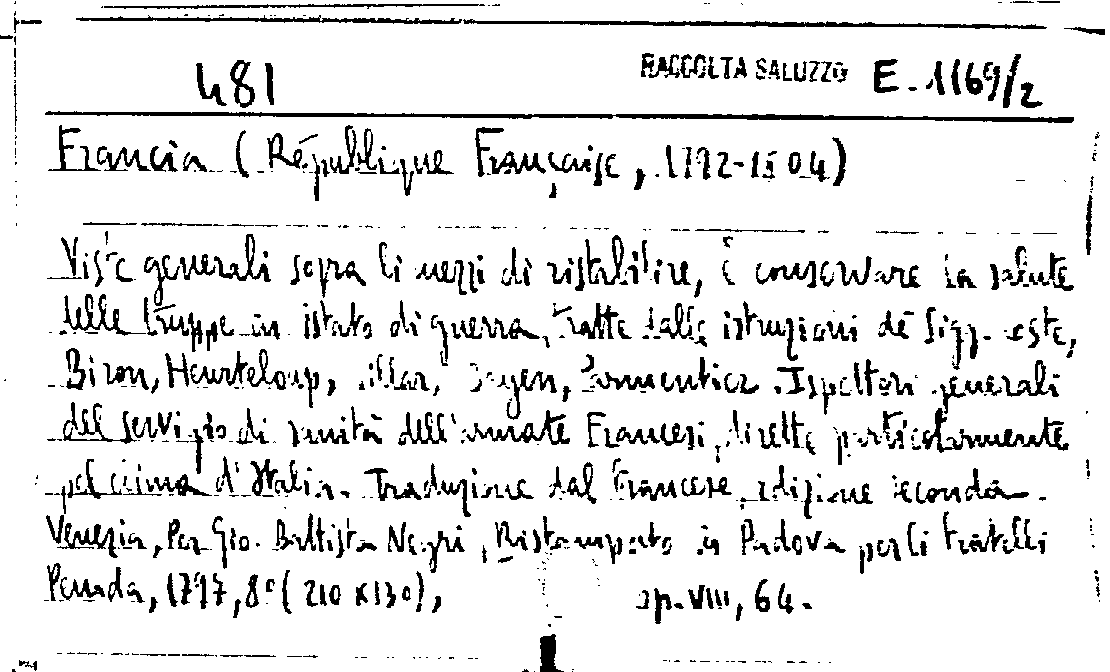 481 RACCOLTA SALUZZO E.1169/2
Francia (République Française, 1792-1804)
Viste generali sopra li mezzi di ristabilire, è conservare la salute
delle truppe in istato di guerra, tratte dalle istruzioni dè Sigg. Coste,
Biron, Heurteloup, Villar, Bayen, Parmentier. Ispettori generali
del servizio di sanità dell'armate Francesi, dirette particolarmente
pel clima d'Italia. Traduzione dal Francese, edizione seconda.
Venezia, Per Gio. Battista Negri, Ristampato in Padova per li fratelli
Penada, 1797, 8° (210 x 130), pp. VIII, 64.